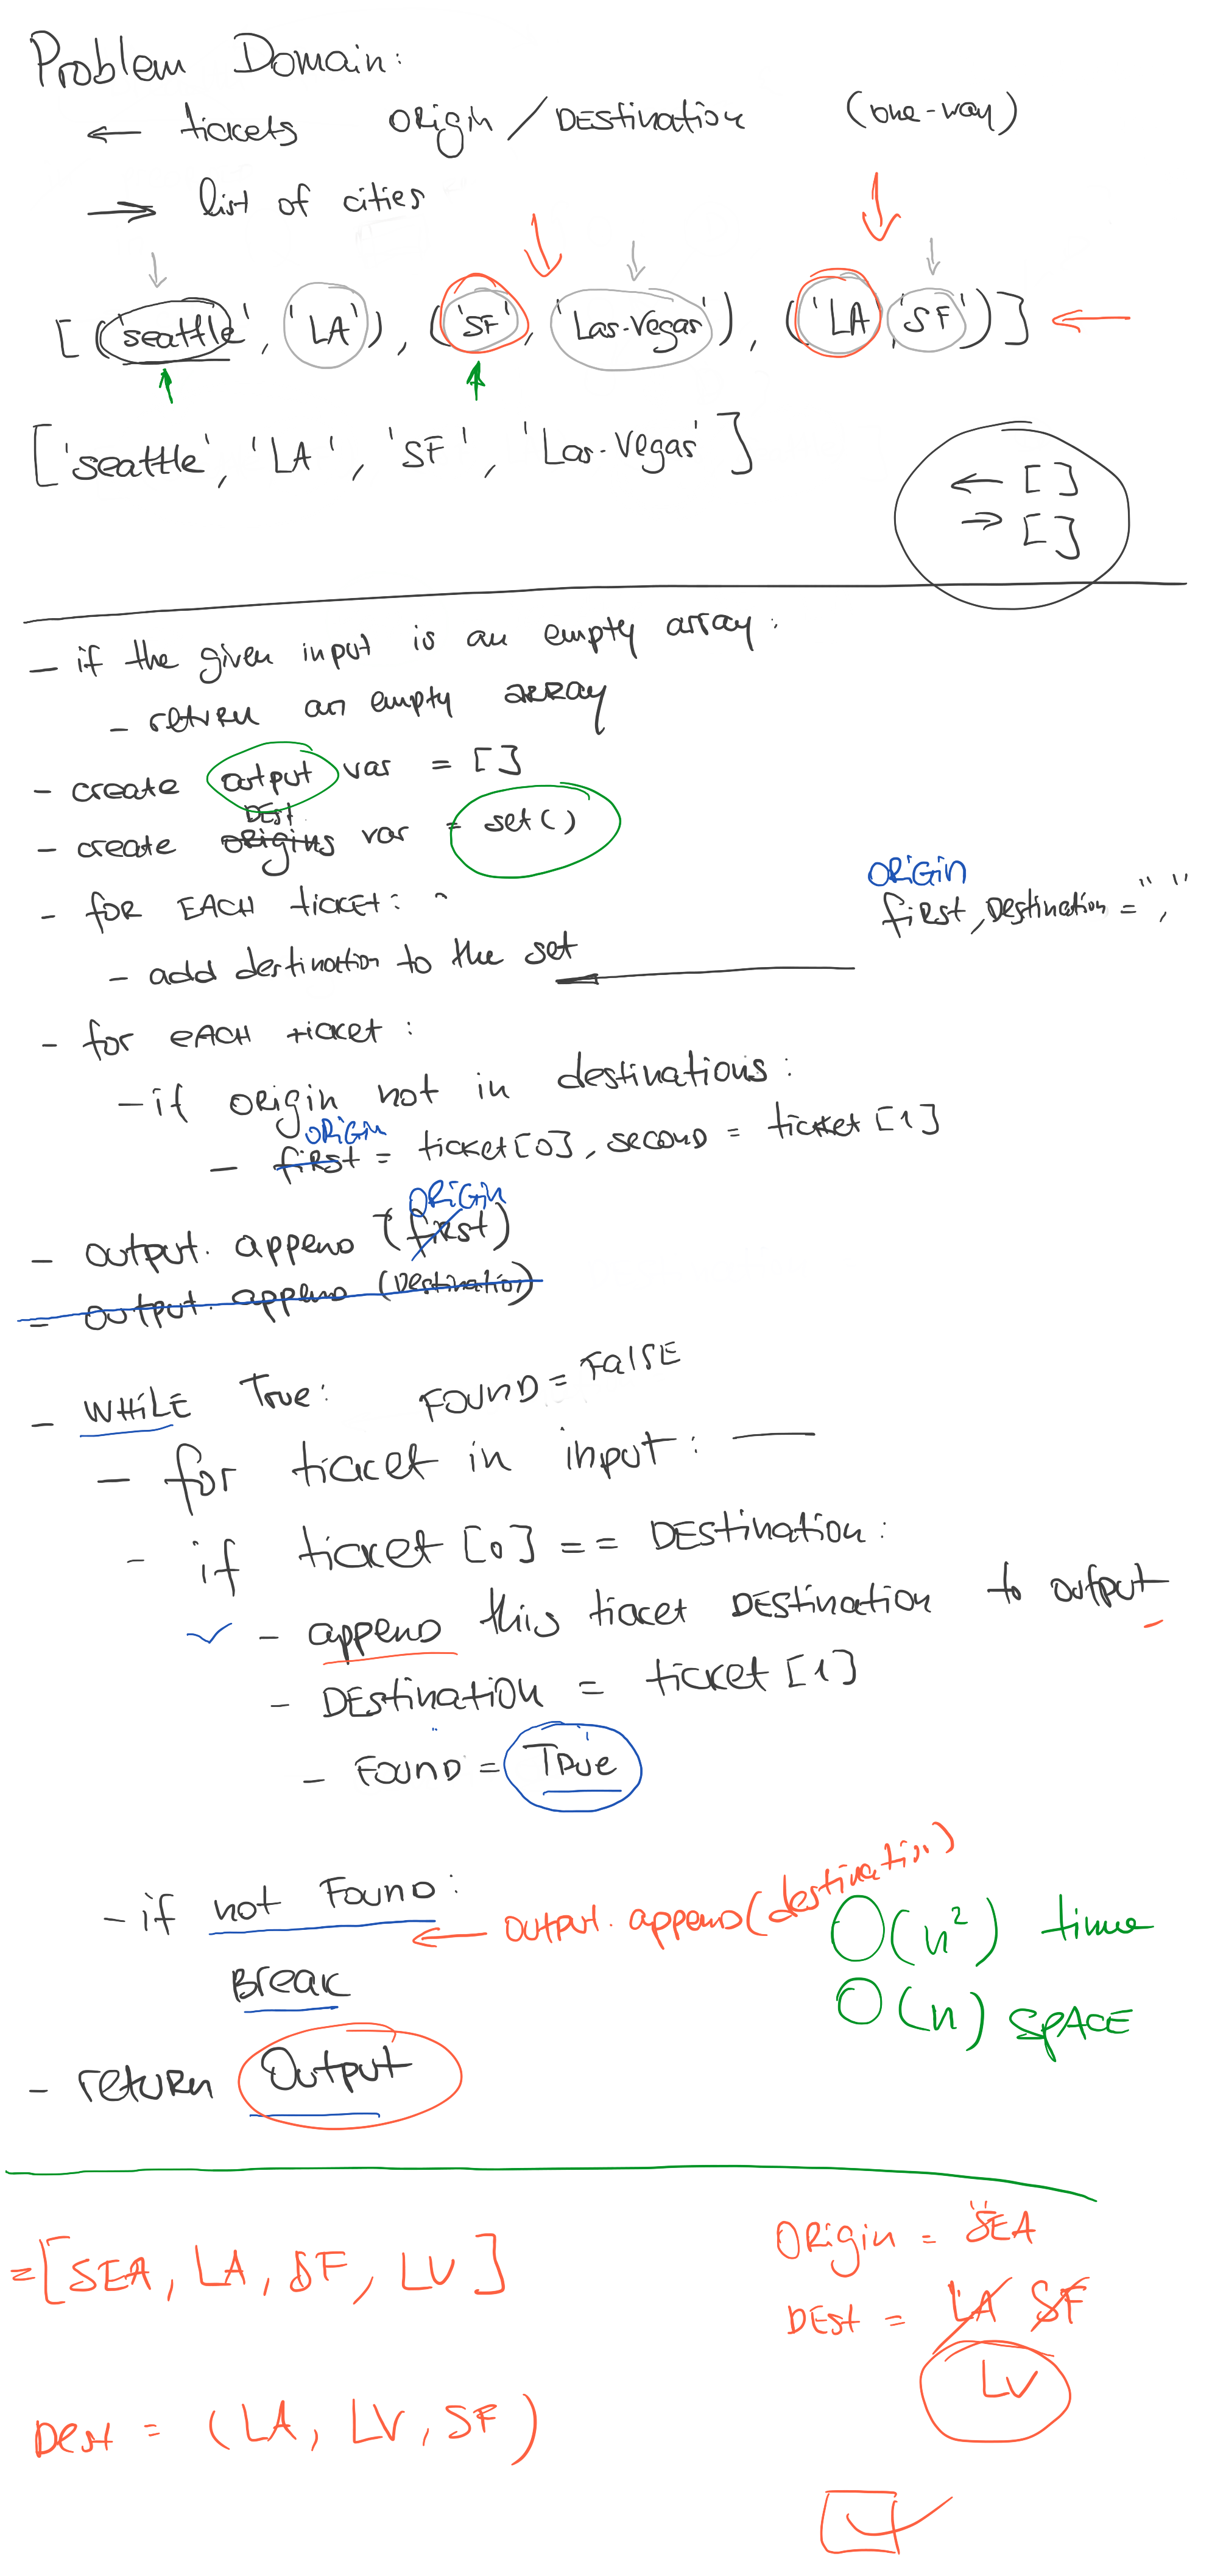 Problem Domain:
← tickets origin / Destination (one-way)
→ list of cities
[('seattle', 'LA'), ('SF', 'Las-Vegas'), ('LA', 'SF')] ←
['seattle', 'LA', 'SF', 'Las-Vegas']
← []
→ []
- if the given input is an empty array:
- return an empty array
- create output var = []
Dest
- create origins var = set()
- for EACH ticket:
ORIGIN
first, Destination = "", ""
- add destination to the set
- for EACH ticket:
- if origin not in destinations:
ORIGIN
- first = ticket[0], second = ticket[1]
ORIGIN
- output.append(first)
- output.append(Destination)
- WHILE True: FOUND = FALSE
- for ticket in input:
- if ticket[0] == DEStination:
- append this ticket DEStination to output
- DEStination = ticket[1]
- FOUND = True
- if not Found:
← output.append(destination)
Break
O(n²) time
O(n) SPACE
- return Output
= [SEA, LA, SF, LV]
ORigin = SEA
DEst = LA SF
LV
Dest = (LA, LV, SF)